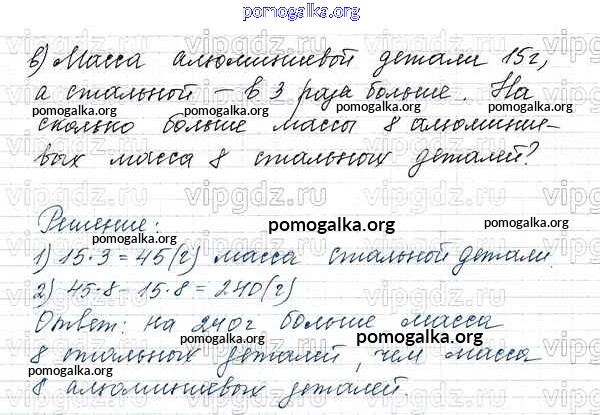 pomogalka.org
в) Масса алюминиевой детали 15г,
а стальной – в 3 раза больше. На
pomogalka.org pomogalka.org pomogalka.org
сколько больше массы 8 алюминие-
вых масса 8 стальных деталей?
pomogalka.org
vipgdz.ru vipgdz.ru vipgdz.ru
Решение:
pomogalka.org pomogalka.org
1) 15·3=45(г) масса стальной детали
2) 45·8-15·8=240(г)
vipgdz.ru vipgdz.ru vipgdz.ru
Ответ: на 240г больше масса
pomogalka.org pomogalka.org pomogalka.org
8 стальных деталей, чем масса
8 алюминиевых деталей.
pomogalka.org
vipgdz.ru vipgdz.ru vipgdz.ru